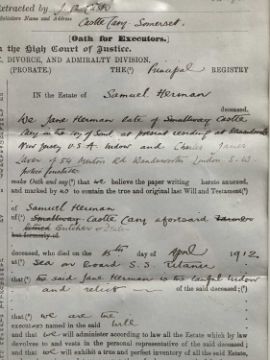 Extracted by
Name and Address Castle Cary. Somerset.
(Oath for Executors.)
the High Court of Justice.
DIVORCE, AND ADMIRALTY DIVISION.
(PROBATE.) THE Principal REGISTRY
IN the Estate of Samuel Herman
deceased.
We Jane Herman late of Smallway Castle
Cary in the Coy of Som't at present residing at
New Jersey U.S.A. Widow and Charles James
of 54 Road Wandsworth London S.W.
Police
make Oath and say that we believe the paper writing hereto annexed,
and marked by us to contain the true and original last Will and Testament
of Samuel Herman
of Smallway Castle Cary aforesaid
Butcher
but formerly of
deceased, who died on the 15th day of April 1912.
at Sea on board S.S. Titanic
that the said Jane Herman is the lawful Widow
and relict of the said deceased;
that we are the
executors named in the said will
and that we will administer according to law all the Estate which by law
devolves to and vests in the personal representative of the said deceased;
and that we will exhibit a true and perfect inventory of all the said Estate,